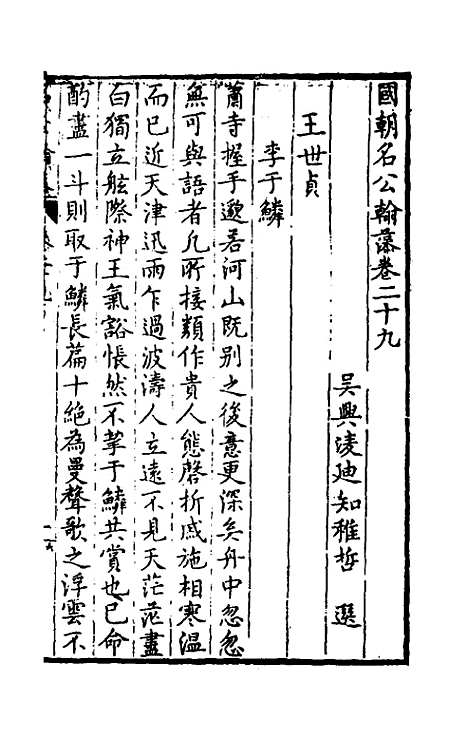 國朝名公翰藻卷二十九
吳興凌迪知稚哲選
王世貞
李于鱗
蕭寺握手邈若河山既别之後意更深矣舟中忽忽
無可與語者凡所接類作貴人態磬折戚施相寒溫
而已近天津迅雨乍過波濤人立遠不見天茫茫盡
白獨立舷際神王氣豁悵然不挈于鱗共賞也已命
酌盡一斗則取于鱗長篇十絶為曼聲歌之浮雲不